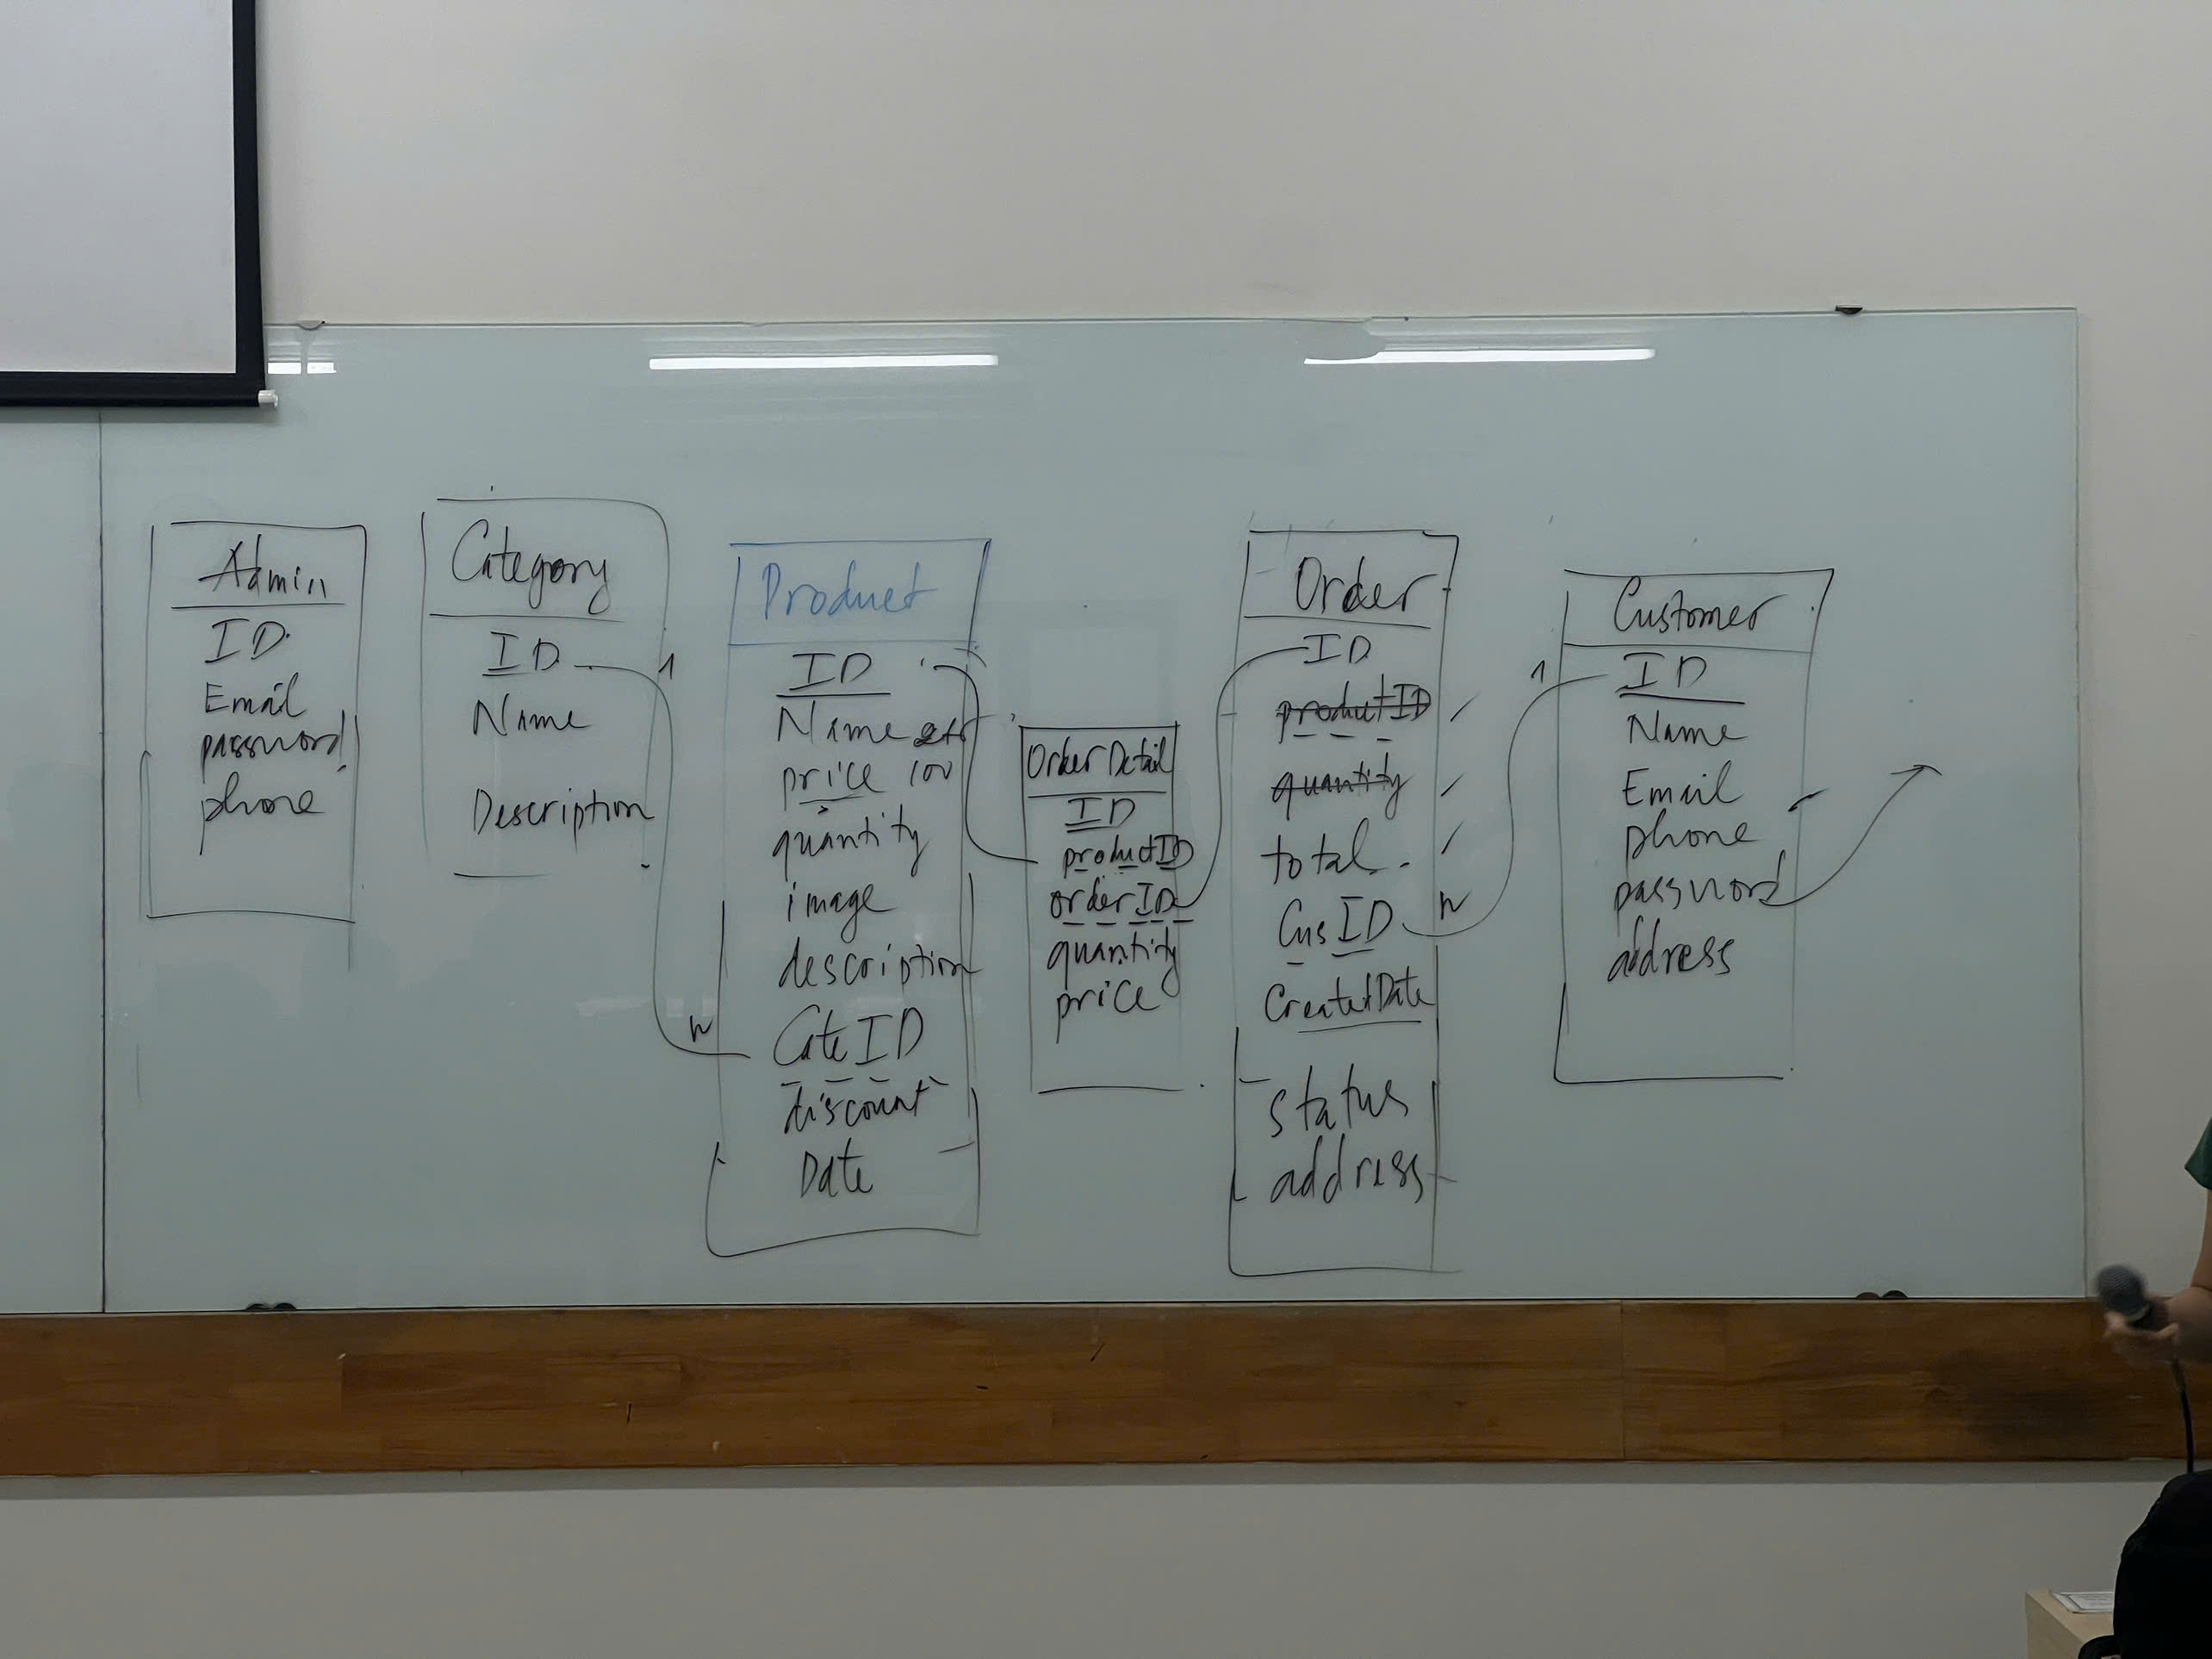 Admin
ID
Email
password
phone
Category
ID
Name
Description
1
n
Product
ID
Name
price 100
quantity
image
description
CateID
discount
Date
OrderDetail
ID
productID
orderID
quantity
price
Order
ID
productID
quantity
total
CusID
CreatedDate
status
address
1
n
Customer
ID
Name
Email
phone
password
address